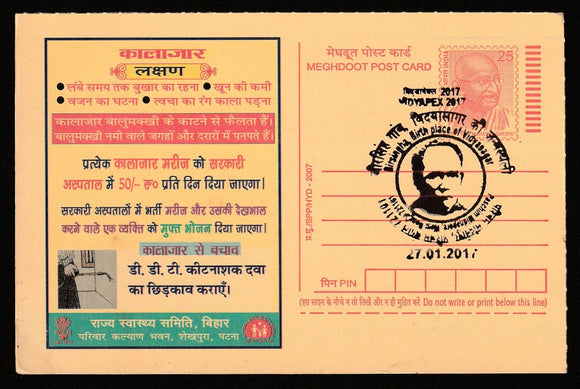 कालाजार
लक्षण
● लंबे समय तक बुखार का रहना ● खून की कमी
● वजन का घटना ● त्वचा का रंग काला पड़ना
कालाजार बालुमक्खी के काटने से फैलता है।
बालुमक्खी नमी वाले जगहों और दरारों में पनपते हैं।
प्रत्येक कालाजार मरीज को सरकारी
अस्पताल में 50/- रु० प्रति दिन दिया जाएगा।
सरकारी अस्पतालों में भर्ती मरीज और उसकी देखभाल
करने वाले एक व्यक्ति को मुफ्त भोजन दिया जाएगा।
कालाजार से बचाव
डी. डी. टी. कीटनाशक दवा
का छिड़काव कराएँ।
राज्य स्वास्थ्य समिति, बिहार
परिवार कल्याण भवन, शेखपुरा, पटना
मेघदूत पोस्ट कार्ड
MEGHDOOT POST CARD
25
विद्यापेक्स 2017
VIDYAPEX 2017
बीरसिंह गांव, विद्यासागर की जन्मस्थली
Birsingha Birth place of Vidyasagar
27.01.2017
प्र.मु./SPP/HYD - 2007
पिन PIN
(इस लाइन के नीचे न तो लिखें और न ही मुद्रित करें Do not write or print below this line)